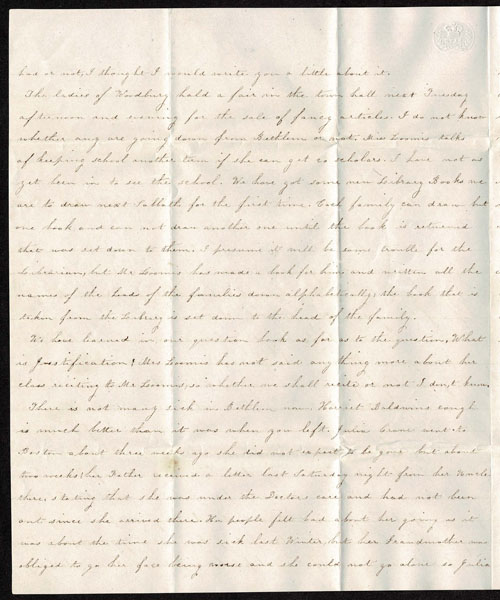 had or not, I thought I would write you a little about it.
The ladies of Woodbury hald a fair in the town hall next Tuesday
afternoon and evening for the sale of fancy articles. I do not know
whether any are going down from Bethlem or not. Miss Loomis talks
of keeping school another term if she can get 20 scholars. I have not as
yet been in to see the school. We have got some new Library Books we
are to draw next Sabbath for the first time. Each family can draw but
one book and can not draw another one until the book is returned
that was set down to them. I presume it will be some trouble for the
Librarian, but Mr Loomis has made a book for him and written all the
names of the heads of the families down alphabetically, the book that is
taken from the Library is set down to the head of the family.
We have learned in our question book as far as to the question, What
is Justification? Mrs Loomis has not said any thing more about her
class reciting to Mr Loomis, so whether we shall recite or not I don,t know.
There is not many sick in Bethlem now. Harriet Baldwins cough
is much better than it was when you left. Julia went to
Boston about three weeks ago she did not expect to be gone but about
two weeks; her Father received a letter last Saturday night from her Uncle
there, stating that she was under the Doctors care and had not been
out since she arrived there. Her people felt bad about her going as it
was about the time she was sick last Winter, but her Grandmother was
obliged to go her face being worse and she could not go alone so Julia